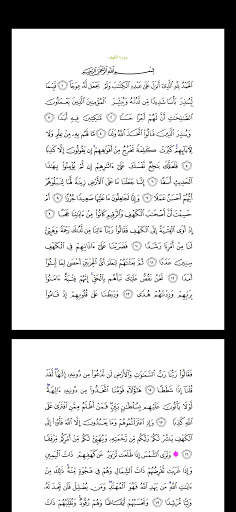 سورة الكهف
بِسْمِ اللَّهِ الرَّحْمَٰنِ الرَّحِيمِ
الْحَمْدُ لِلَّهِ الَّذِي أَنزَلَ عَلَىٰ عَبْدِهِ الْكِتَٰبَ وَلَمْ يَجْعَل لَّهُ عِوَجًا ١ قَيِّمًا
لِّيُنذِرَ بَأْسًا شَدِيدًا مِّن لَّدُنْهُ وَيُبَشِّرَ الْمُؤْمِنِينَ الَّذِينَ يَعْمَلُونَ
الصَّٰلِحَٰتِ أَنَّ لَهُمْ أَجْرًا حَسَنًا ٢ مَّٰكِثِينَ فِيهِ أَبَدًا ٣
وَيُنذِرَ الَّذِينَ قَالُوا اتَّخَذَ اللَّهُ وَلَدًا ٤ مَّا لَهُم بِهِ مِنْ عِلْمٍ وَلَا
لِءَابَآئِهِمْ كَبُرَتْ كَلِمَةً تَخْرُجُ مِنْ أَفْوَٰهِهِمْ إِن يَقُولُونَ إِلَّا كَذِبًا
٥ فَلَعَلَّكَ بَٰخِعٌ نَّفْسَكَ عَلَىٰٓ ءَاثَٰرِهِمْ إِن لَّمْ يُؤْمِنُوا بِهَٰذَا
الْحَدِيثِ أَسَفًا ٦ إِنَّا جَعَلْنَا مَا عَلَى الْأَرْضِ زِينَةً لَّهَا لِنَبْلُوَهُمْ
أَيُّهُمْ أَحْسَنُ عَمَلًا ٧ وَإِنَّا لَجَٰعِلُونَ مَا عَلَيْهَا صَعِيدًا جُرُزًا ٨ أَمْ
حَسِبْتَ أَنَّ أَصْحَٰبَ الْكَهْفِ وَالرَّقِيمِ كَانُوا مِنْ ءَايَٰتِنَا عَجَبًا ٩
إِذْ أَوَى الْفِتْيَةُ إِلَى الْكَهْفِ فَقَالُوا رَبَّنَآ ءَاتِنَا مِن لَّدُنكَ رَحْمَةً وَهَيِّئْ
لَنَا مِنْ أَمْرِنَا رَشَدًا ١٠ فَضَرَبْنَا عَلَىٰٓ ءَاذَانِهِمْ فِي الْكَهْفِ
سِنِينَ عَدَدًا ١١ ثُمَّ بَعَثْنَٰهُمْ لِنَعْلَمَ أَيُّ الْحِزْبَيْنِ أَحْصَىٰ لِمَا لَبِثُوا
أَمَدًا ١٢ نَّحْنُ نَقُصُّ عَلَيْكَ نَبَأَهُم بِالْحَقِّ إِنَّهُمْ فِتْيَةٌ ءَامَنُوا
بِرَبِّهِمْ وَزِدْنَٰهُمْ هُدًى ١٣ وَرَبَطْنَا عَلَىٰ قُلُوبِهِمْ إِذْ قَامُوا
فَقَالُوا رَبُّنَا رَبُّ السَّمَٰوَٰتِ وَالْأَرْضِ لَن نَّدْعُوَا مِن دُونِهِ إِلَٰهًا لَّقَدْ
قُلْنَآ إِذًا شَطَطًا ١٤ هَٰٓؤُلَآءِ قَوْمُنَا اتَّخَذُوا مِن دُونِهِ ءَالِهَةً
لَّوْلَا يَأْتُونَ عَلَيْهِم بِسُلْطَٰنٍ بَيِّنٍ فَمَنْ أَظْلَمُ مِمَّنِ افْتَرَىٰ عَلَى
اللَّهِ كَذِبًا ١٥ وَإِذِ اعْتَزَلْتُمُوهُمْ وَمَا يَعْبُدُونَ إِلَّا اللَّهَ فَأْوُۥٓا إِلَى
الْكَهْفِ يَنشُرْ لَكُمْ رَبُّكُم مِّن رَّحْمَتِهِ وَيُهَيِّئْ لَكُم مِّنْ أَمْرِكُم مِّرْفَقًا
١٦ وَتَرَى الشَّمْسَ إِذَا طَلَعَت تَّزَٰوَرُ عَن كَهْفِهِمْ ذَاتَ الْيَمِينِ
وَإِذَا غَرَبَت تَّقْرِضُهُمْ ذَاتَ الشِّمَالِ وَهُمْ فِي فَجْوَةٍ مِّنْهُ ذَٰلِكَ مِنْ
ءَايَٰتِ اللَّهِ مَن يَهْدِ اللَّهُ فَهُوَ الْمُهْتَدِ وَمَن يُضْلِلْ فَلَن تَجِدَ لَهُ
وَلِيًّا مُّرْشِدًا ١٧ وَتَحْسَبُهُمْ أَيْقَاظًا وَهُمْ رُقُودٌ وَنُقَلِّبُهُمْ ذَاتَ